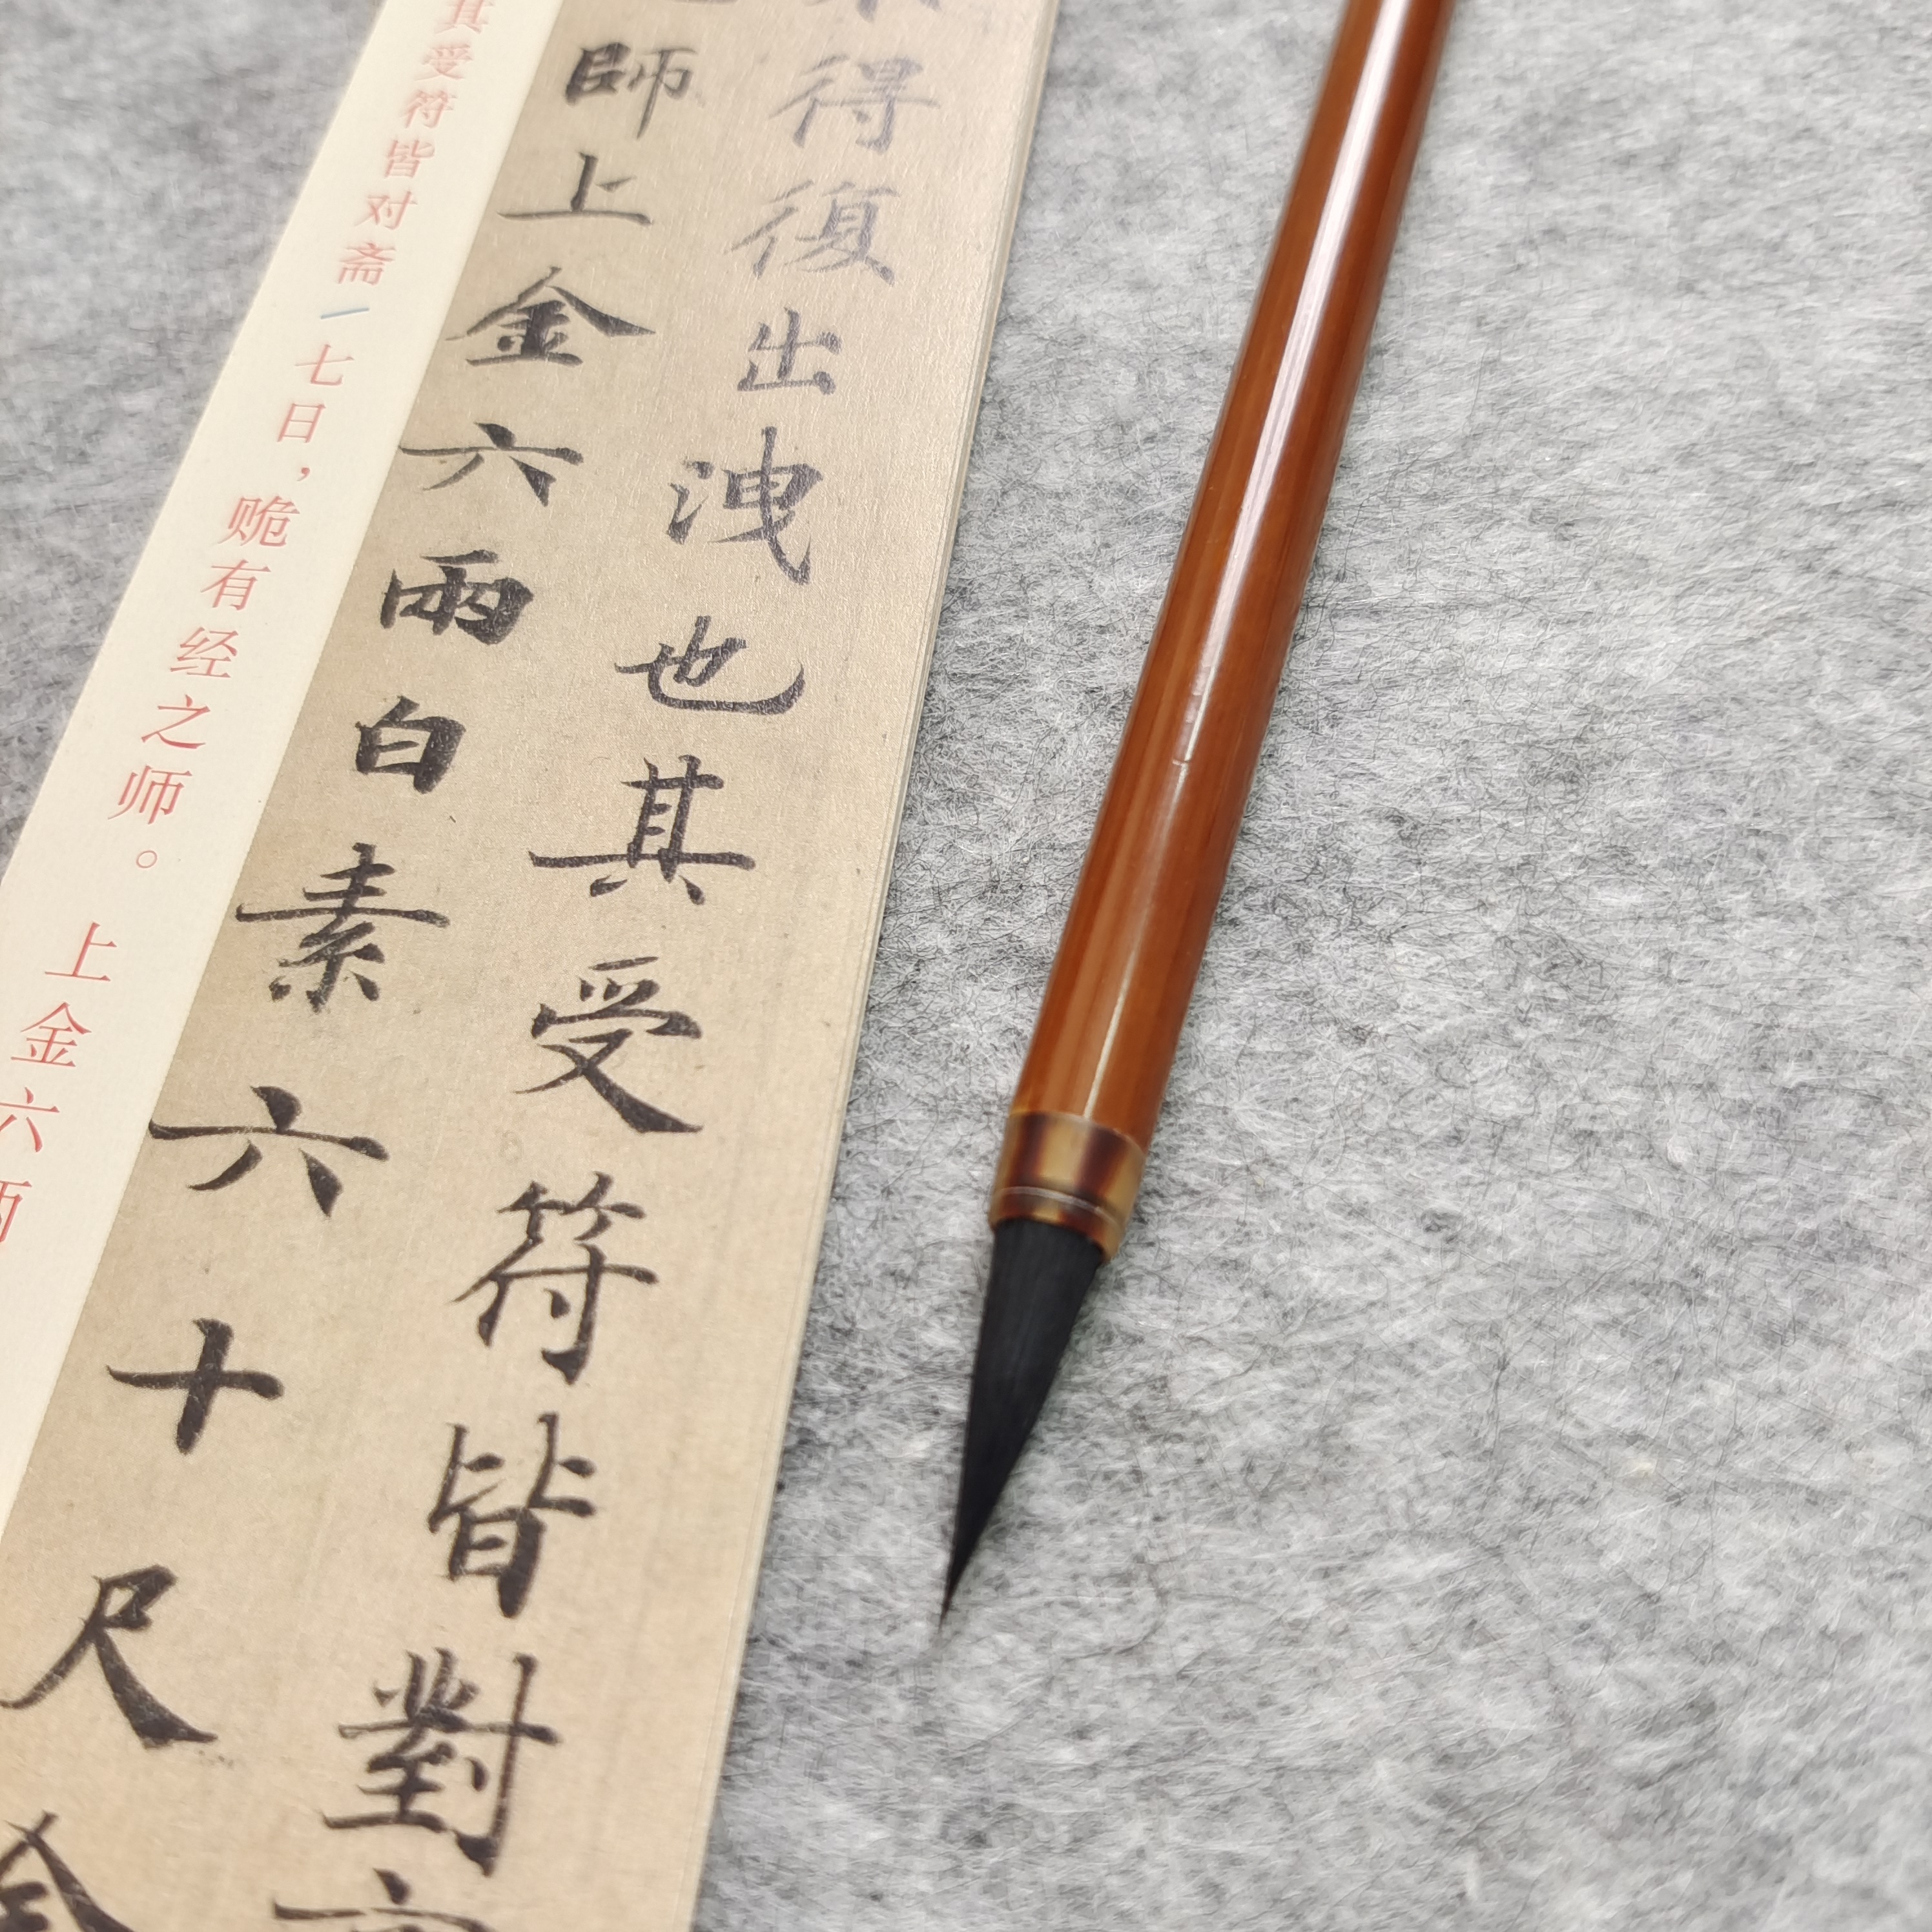 得復出洩也其受符皆對
師上金六兩白素六十尺金
其受符皆对斋一七日，贶有经之师。上金六两